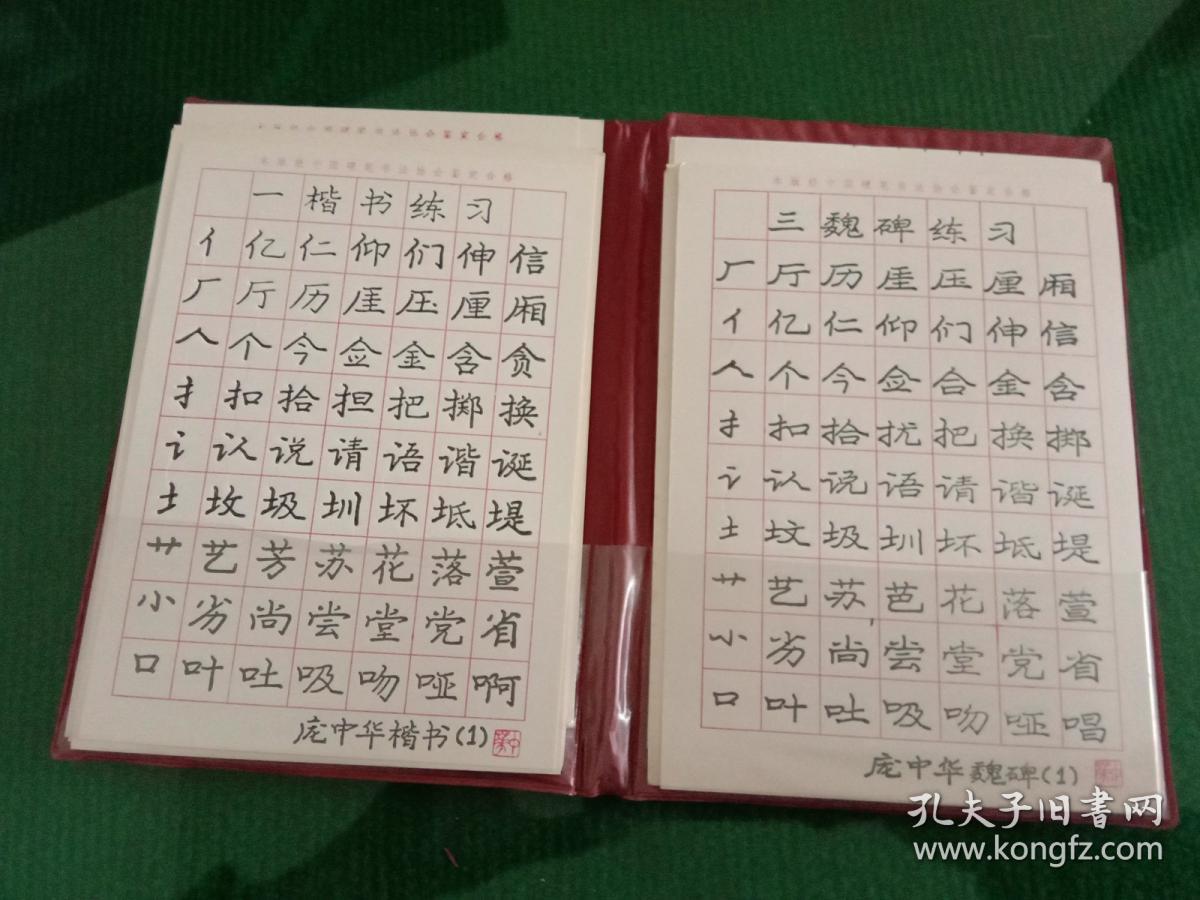 会鉴定合格
本版经中国硬笔书法协会鉴定合格
一楷书练习
亻亿仁仰们伸信
厂厅历厓压厘厢
人个今佥金含贪
扌扣拾担把掷换
讠认说请语谐诞
土坟圾圳坏坻堤
艹艺芳苏花落萱
小劣尚尝堂党省
口叶吐吸吻哑啊
庞中华楷书(1)
本版经中国硬笔书法协会鉴定合格
三魏碑练习
厂厅历厓压厘厢
亻亿仁仰们伸信
人个今佥合金含
扌扣拾扰把换掷
讠认说语请谐诞
土坟圾圳坏坻堤
艹艺苏芭花落萱
小劣尚尝堂党省
口叶吐吸吻哑唱
庞中华魏碑(1)
孔夫子旧书网
www.kongfz.com